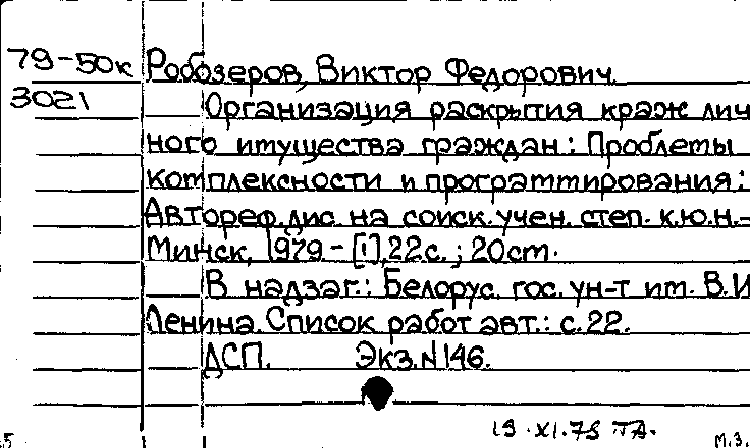 79-50к Робозеров, Виктор Федорович.
3021 Организация раскрытия краж лич
ного имущества граждан: Проблемы
комплексности и программирования:
Автореф. дис. на соиск. учен. степ. к.ю.н.-
Минск, 1979 - [1], 22с.; 20см.
В надзаг.: Белорус. гос. ун-т им. В.И
Ленина. Список работ авт.: с.22.
ДСП. Экз.N146.
М.З.